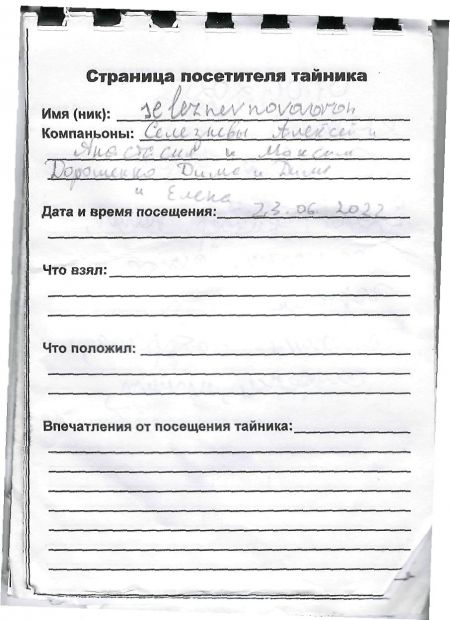 Страница посетителя тайника
Имя (ник): seleznevnovovoron
Компаньоны: Селезневы Алексей и
Анастасия и Максим
Дорошенко Дима и Дима
и Елена
Дата и время посещения: 23.06.2022
Что взял:
Что положил:
Впечатления от посещения тайника: